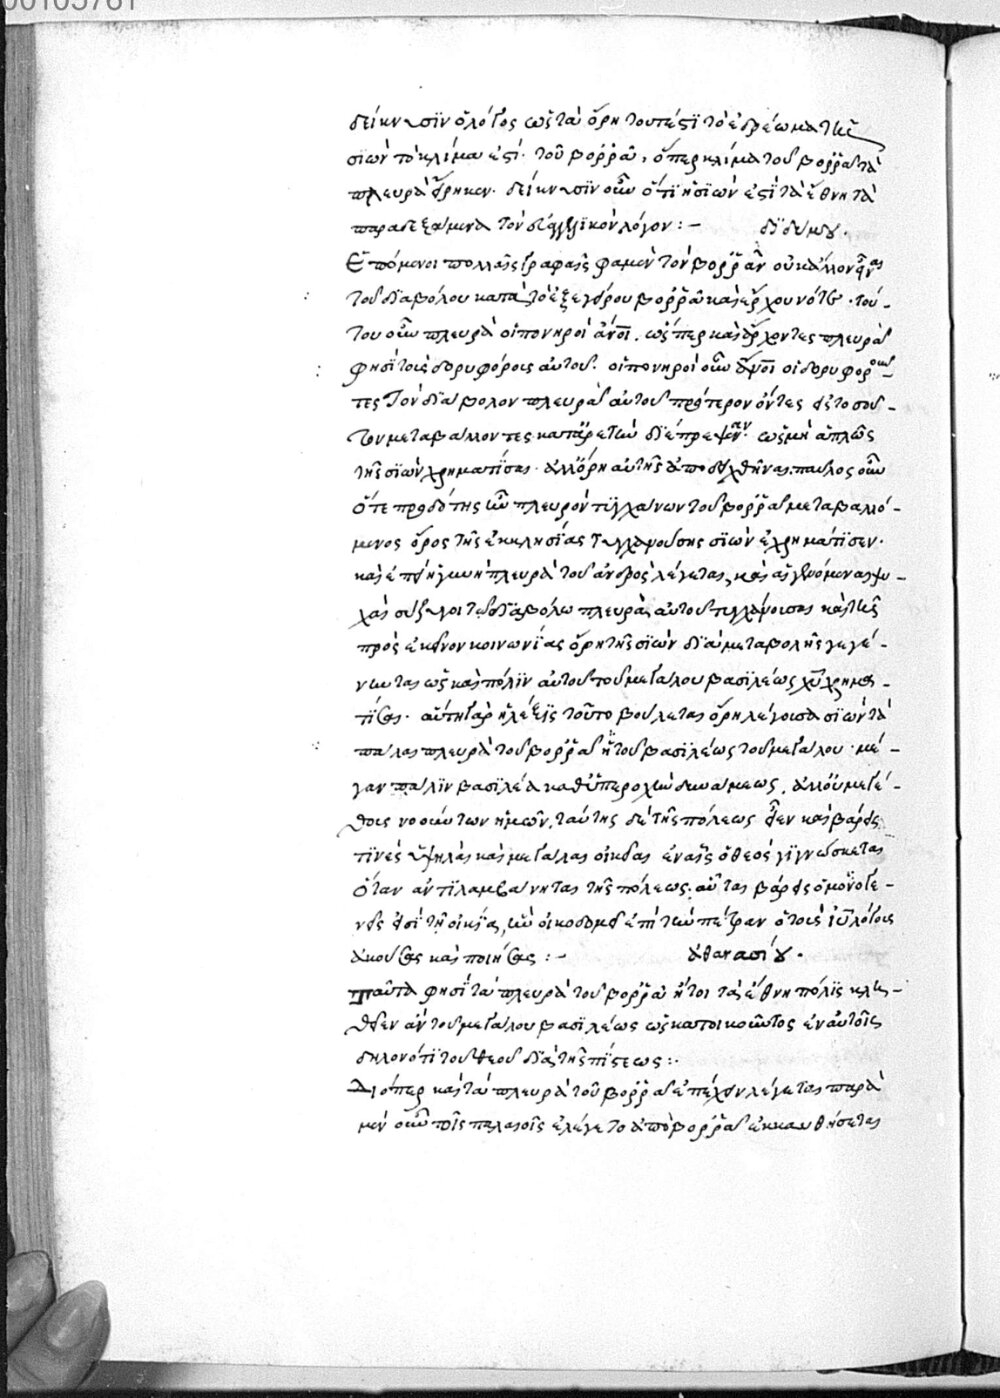 00103781
δείκνυσϊν ὁ λόγος ὡς τὰ ὄρη τουτέστι τὸ ἑδρέωμα τῆς
σϊὼν τὸ κλίμα ἐστί· τοῦ βορρᾶ, ὅπερ κλίμα τοῦ βορρᾶ τὰ
πλευρὰ εἴρηκεν· δείκνυσϊν οὖν ὅτι ἡ σϊών ἐστὶ τὰ ἔθνη τὰ
παραδεξάμενα τὸν εὐαγγελϊκὸν λόγον :– δϊδύμου.
Ἑπόμενοι πολλαῖς γραφαῖς φαμὲν τὸν βορρᾶν οὐκ ἄλλον εἶναι
τοῦ δϊαβόλου κατὰ τὸ ἐξεγείρου βορρᾶ καὶ ἔρχου νότε· τού-
του οὖν πλευρὰ οἱ πονηροὶ ἄνοι. ὥσπερ καὶ ἄρχοντες πλευραὶ
φησὶ τοῖς δορυφόροις αὐτοῦ. οἱ πονηροὶ οὖν οἱ δορυφοροῦν-
τες τὸν δϊάβολον πλευραὶ αὐτοῦ πρότερον ὄντες
τον μεταβάλλοντες κατ' ἀρετὴν δϊέπρεψαν· ὡς μὴ ἁπλῶς
τῆς σϊὼν χρηματίσαι· ἀλλ' ὄρη αὐτῆς ἀποδειχθῆναι. παῦλος οὖν
ὅτε προδότης ἦν πλευρὸν τϋγχάνων τοῦ βορρᾶ μεταβαλλό-
μενος ὄρος τῆς ἐκκλησίας τυγχανούσης σϊὼν ἐχρημάτϊσεν·
καὶ ἐπεὶ ἡ γυνὴ πλευρὰ τοῦ ἀνδρὸς λέγεται, καὶ αἱ γενόμεναι ψυ-
χαὶ σύζυγοι τῷ δϊαβόλῳ πλευραὶ αὐτοῦ τυγχάνουσαι καὶ τῆς
πρὸς ἐκεῖνον κοινωνΐας ὄρη τῆς σϊὼν δϊὰ μεταβολῆς γεγέ-
νηνται ὡς καὶ πόλϊν αὐτοῦ τοῦ μεγάλου βασϊλέως χῦ χρημα-
τίσαι· αὕτη γὰρ ἡ λέξϊς τοῦτο βούλεται ὄρη λέγουσα σϊὼν τὰ
πάλαι πλευρὰ τοῦ βορρᾶ ἢ τοῦ βασϊλέως τοῦ μεγάλου· μέ-
γαν πάλϊν βασϊλέα καθ' ὑπεροχὴν δυνάμεως, ἀλλ' οὐ μεγέ-
θους νοούντων ἡμῶν, ταύτης δὲ τῆς πόλεως εἶεν καὶ βάρεις
τϊνὲς ὑψηλαὶ καὶ μεγάλαι οἰκίαι ἐν αἷς ὁ θεὸς γϊγνώσκεται
ὅταν ἀντϊλαμβάνηται τῆς πόλεως· αὗται βάρεις ὁμονογε-
νεῖς εἰσὶ τῇ οἰκίᾳ, ἣν οἰκοδομεῖ ἐπὶ τὴν πέτραν ὁ τοὺς ιῦ λόγους
ἀκούσας καὶ ποιήσας :– ἀθανασίου.
Ταῦτα φησὶ τὰ πλευρὰ τοῦ βορρᾶ ἤτοι τὰ ἔθνη πόλϊς κλη-
θεῖεν ἂν τοῦ μεγάλου βασϊλέως ὡς κατοικοῦντος ἐν αὐτοῖς
δηλονότϊ τοῦ θεοῦ δϊὰ τῆς πίστεως :·
Διόπερ καὶ τὰ πλευρὰ τοῦ βορρᾶ ἐπέχειν λέγεται παρὰ
μὲν οὖν τοῖς παλαιοῖς ἐλέγετο ἀπὸ βορρᾶ ἐκκαυθήσεται